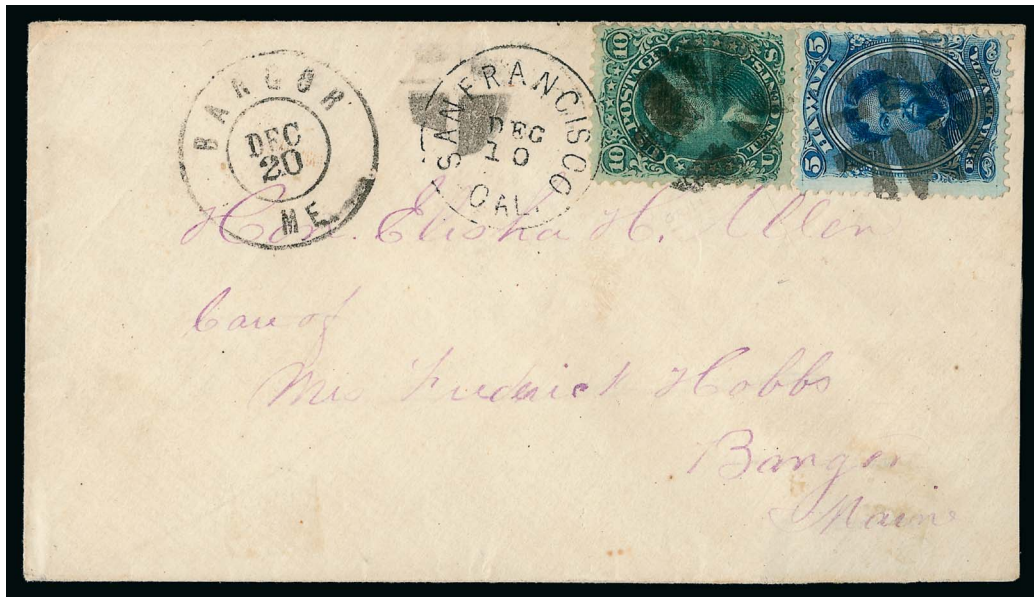 BANGOR
DEC
20
ME.
SAN FRANCISCO
DEC
10
CAL.
10 10
U.S. POSTAGE
TEN CENTS.
U S
5 5
HAWAII
Hon. Elisha H. Allen
Care of
Frederick Hobbs
Bangor
Maine